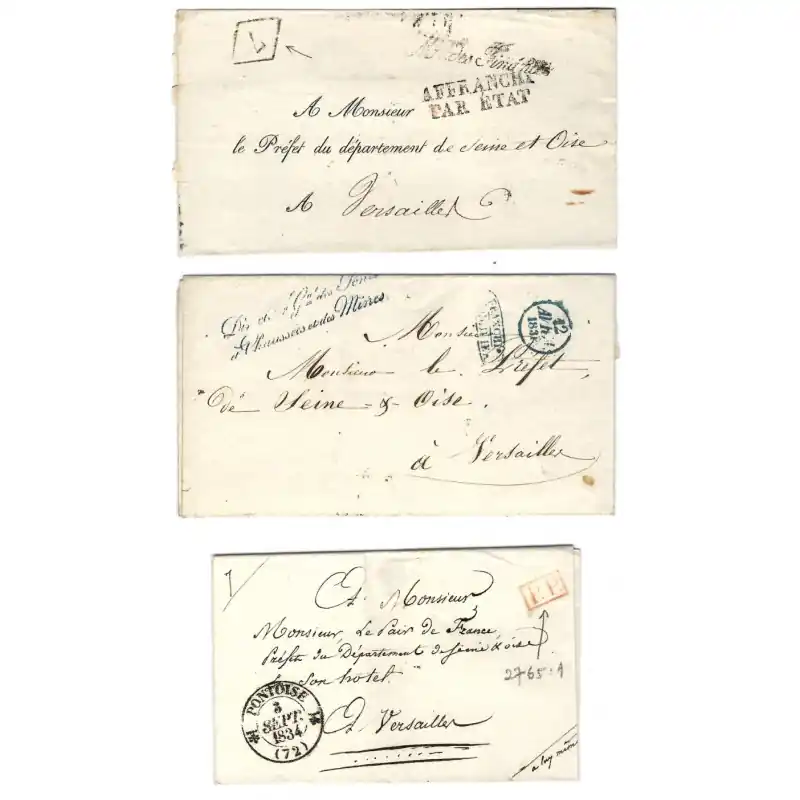 L
Min. des Finances
AFFRANCHI
PAR ÉTAT
A Monsieur
le Préfet du département de Seine et Oise
A Versailles
Dir. des
et
Chaussées et des Mines
12
183
Monsieur
Monsieur le Préfet,
de Seine & Oise.
à Versailles
1
A Monsieur
P.P.
Monsieur, Le Pair de France,
Préfet du Département de Seine & Oise
son hotel
2765:1
A Versailles
PONTOISE
3
SEPT.
1834
(72)